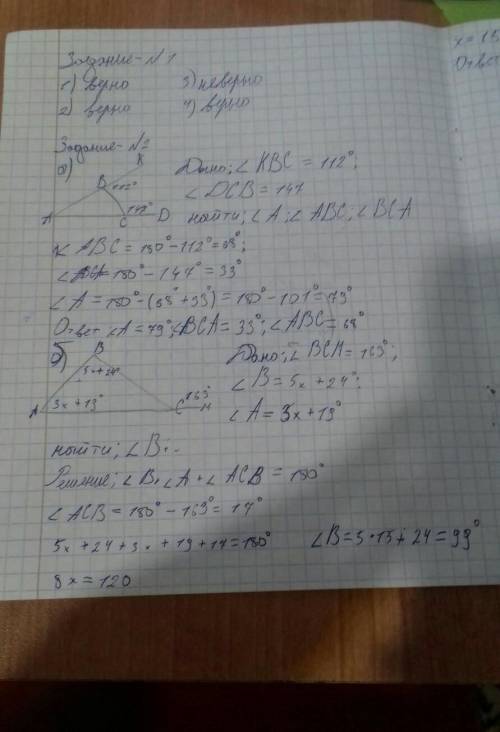 Задание - №1
1) верно 3) неверно
2) верно 4) верно
Задание - №2
а)
K
B
112°
147°
A
C
D
Дано; ∠KBC = 112°;
∠DCB = 147
найти; ∠A; ∠ABC; ∠BCA
∠ABC = 180° - 112° = 68°;
180° - 147° = 33°
∠A = 180° - (68° + 33°) = 180° - 101° = 79°
Ответ ∠A = 79°; ∠BCA = 33°; ∠ABC = 68°
б)
B
5x + 24°
163°
A
3x + 19°
C
H
Дано; ∠BCH = 163°;
∠B = 5x + 24°;
∠A = 3x + 19°
найти; ∠B; -
Решение; ∠B, ∠A + ∠ACB = 180°
∠ACB = 180° - 163° = 17°
5x + 24 + 3x + 19 + 17 = 180° ∠B = 5 · 15 + 24 = 99°
8x = 120
x = 15
Ответ